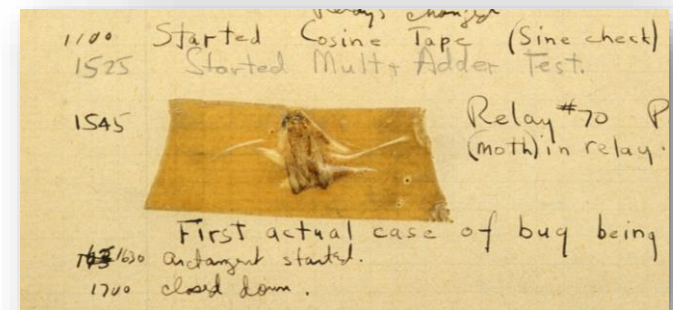 Relays changed
1100 Started Cosine Tape (Sine check)
1525 Started Mult + Adder Test.
1545 Relay #70 P
(moth) in relay.
First actual case of bug being
1630 arctangent started.
1700 closed down.